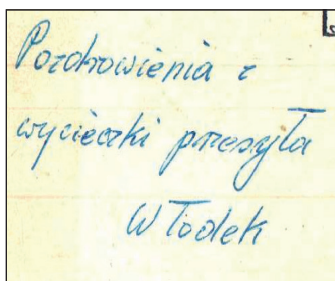 Pozdrowienia z
wycieczki przesyła
Włodek